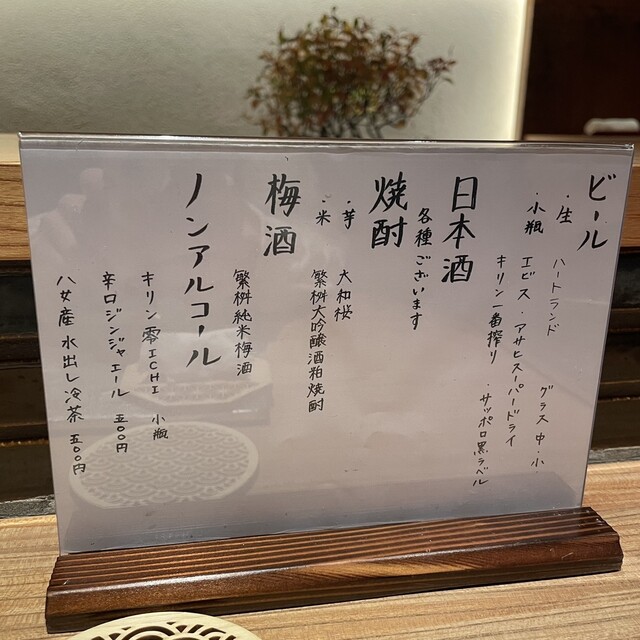 ビール
・生 ハートランド グラス 中・小
・小瓶 エビス・アサヒスーパードライ
キリン一番搾り・サッポロ黒ラベル
日本酒
各種ございます
焼酎
・芋 大和桜
・米 繁桝大吟醸酒粕焼酎
梅酒
繁桝純米梅酒
ノンアルコール
キリン零ICHI 小瓶
辛口ジンジャエール 五〇〇円
八女産水出し冷茶 五〇〇円